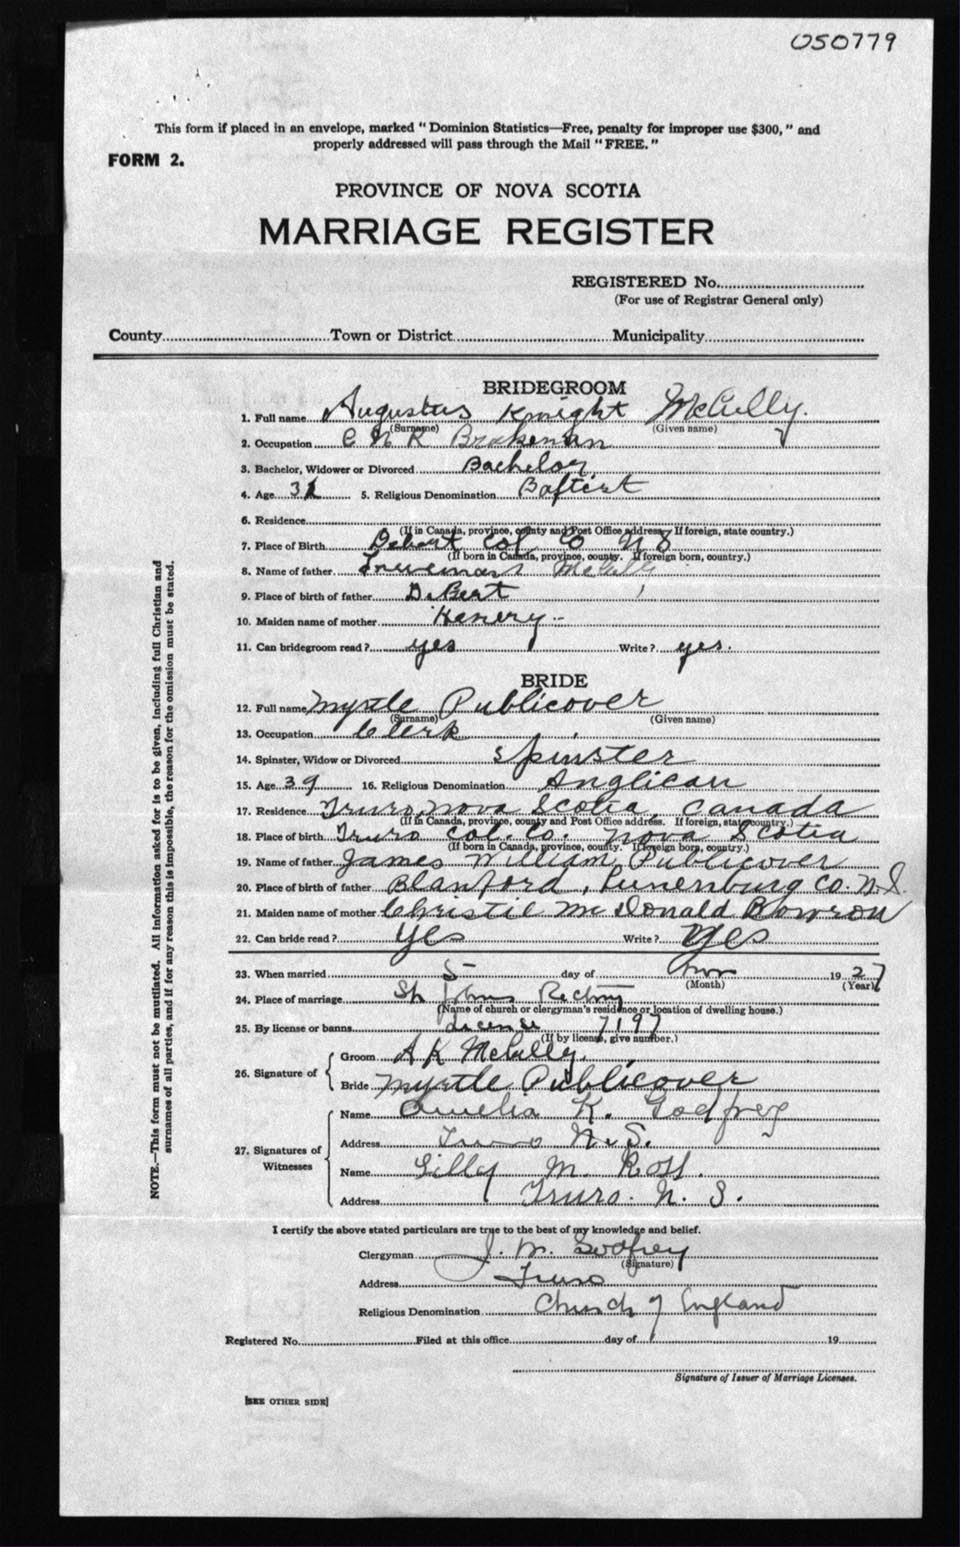 050779
This form if placed in an envelope, marked "Dominion Statistics—Free, penalty for improper use $300," and
properly addressed will pass through the Mail "FREE."
FORM 2.
PROVINCE OF NOVA SCOTIA
MARRIAGE REGISTER
REGISTERED No.
(For use of Registrar General only)
County Town or District Municipality
BRIDEGROOM
1. Full name Augustus Knight McCully.
(Surname) (Given name)
2. Occupation C N R Brakeman
3. Bachelor, Widower or Divorced Bachelor
4. Age 5. Religious Denomination Baptist
6. Residence
(If in Canada, province, county and Post Office address. If foreign, state country.)
7. Place of Birth Debert Col C N S
(If born in Canada, province, county. If foreign born, country.)
8. Name of father McCully
9. Place of birth of father DeBert
10. Maiden name of mother Henery
11. Can bridegroom read? yes Write? yes.
BRIDE
12. Full name Myrtle Publicover
(Surname) (Given name)
13. Occupation Clerk
14. Spinster, Widow or Divorced Spinster
15. Age 39 16. Religious Denomination Anglican
17. Residence Truro, Nova Scotia, Canada
(If in Canada, province, county and Post Office address. If foreign, state country.)
18. Place of birth Truro Col. Co. Nova Scotia
(If born in Canada, province, county. If foreign born, country.)
19. Name of father James William Publicover
20. Place of birth of father Blanford, Lunenburg Co. N.S.
21. Maiden name of mother Christie McDonald Bowron
22. Can bride read? Yes Write? Yes
23. When married 5 day of Nov 1927
(Month) (Year)
24. Place of marriage St Johns Rectory
(Name of church or clergyman's residence or location of dwelling house.)
25. By license or banns License 7197
(If by license, give number.)
26. Signature of
Groom A K McCully.
Bride Myrtle Publicover
27. Signatures of Witnesses
Name Amelia K. Godfrey
Address Truro N.S.
Name Lilly M. Ross.
Address Truro. N. S.
I certify the above stated particulars are true to the best of my knowledge and belief.
Clergyman J. M. Godfrey
(Signature)
Address Truro
Religious Denomination Church of England
Registered No. Filed at this office day of 19
Signature of Issuer of Marriage Licenses.
[SEE OTHER SIDE]
NOTE.—This form must not be mutilated. All information asked for is to be given, including full Christian and
surnames of all parties, and if for any reason this is impossible, the reason for the omission must be stated.